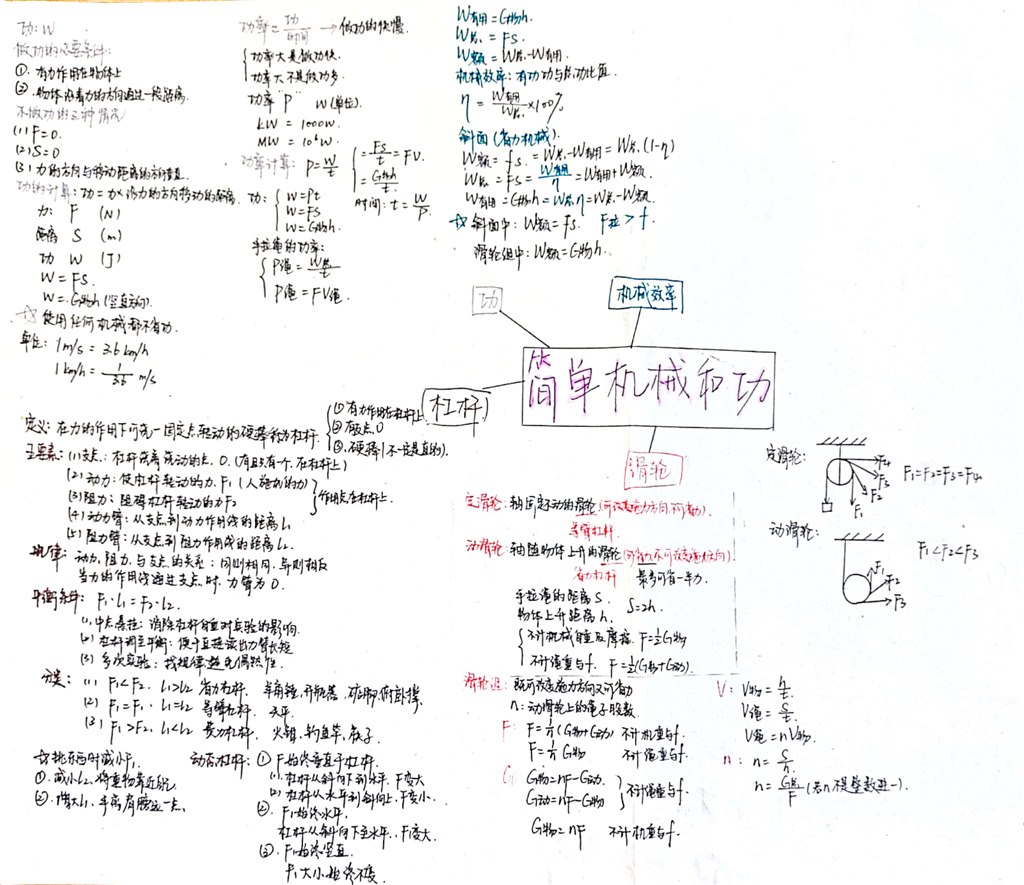 功：W
做功的必要条件：
①. 有力作用在物体上
②. 物体沿着力的方向通过一段距离.
不做功的三种情况
(1) F=0.
(2) S=0
(3) 力的方向与移动距离的方向垂直.
功的计算：功=力×沿力的方向移动的距离.
力： F (N)
距离 S (m)
功 W (J)
W=FS.
W=G物h (竖直方向).
☆ 使用任何机械都不省功.
单位： 1m/s = 3.6 km/h
1 km/h = 1/3.6 m/s
功率=功/时间 → 做功的快慢.
功率大是做功快.
功率大不是做功多.
功率"P" W (单位).
kW = 1000W.
MW = 10⁶W.
功率计算： P=W/t =Fs/t = FV.
=G物h/t
时间：t=W/P.
功： W=Pt
W=FS
W=G物h
手拉绳的功率：
P绳=W总/t
P绳=FV绳.
W有用=G物h.
W总=FS.
W额=W总-W有用.
机械效率：有功功与总功比值.
η=W有用/W总×100%
斜面(省力机械).
W额=fs.=W总-W有用=W总·(1-η)
W总=FS=W有用/η=W有用+W额.
W有用=G物h=W总η=W总-W额.
☆ 斜面中：W额=fs. F拉>f.
滑轮组中：W额=G物h.
功
机械效率
简单机械和功
杠杆
滑轮
定义：在力的作用下可绕一固定点转动的硬棒称为杠杆.
①有力作用在杠杆上
②有支点O
③.硬棒(不一定是直的).
五要素：(1)支点：杠杆绕着转动的点. O. (有且只有一个,在杠杆上)
(2)动力：使杠杆转动的力. F₁ (人施加的力)
(3)阻力：阻碍杠杆转动的力F₂
作用点在杠杆上.
(4)动力臂：从支点到动力作用线的距离L₁
(5)阻力臂：从支点到阻力作用线的距离L₂.
规律： 动力、阻力、与支点的关系：同则相同,异则相反
当力的作用线通过支点时,力臂为0.
平衡条件： F₁·L₁=F₂·L₂.
(1)中点悬挂：消除杠杆自重对实验的影响.
(2)杠杆调至平衡：便于直接读出力臂长短
(3) 多次实验：找规律避免偶然性.
分类： (1) F₁<F₂. L₁>L₂ 省力杠杆.
(2) F₁=F₁. L₁=L₂ 等臂杠杆. 天平.
(3) F₁>F₂. L₁<L₂ 费力杠杆. 火钳、钓鱼竿、筷子
☆挑东西时减小F₁
①.减小L₂.将重物靠近
②.增大L₁.手离肩膀远一点.
动态杠杆：① F始终垂直于杠杆.
(1).杠杆从斜向下到水平. F变大
(2) 杠杆从水平到斜向上. F变小.
②. F始终水平.
杠杆从斜向下至水平. F变大.
③. F始终竖直.
F大小始终不变
定滑轮：轴固定不动的滑轮(可改变施力方向,不可省力).
等臂杠杆.
动滑轮：轴随物体上升的滑轮(可省力不可改变施力方向)
省力杠杆 最多可省一半力.
手拉绳的距离S.
物体上升距离h.
S=2h.
不计机械自重及摩擦. F=½G物
不计绳重与f. F=½(G物+G动).
滑轮组： 既可改变施力方向又可省力
n：动滑轮上的绳子股数
F： F=1/n(G物+G动) 不计绳重与f.
F=1/n G物 不计绳重与f.
G G物=nF-G动.
G动=nF-G物
不计绳重与f.
G物=nF 不计机重与f.
V： V物=h/t.
V绳=S/t.
V绳=nV物
n： n=S/h.
n=G总/F (若n不是整数进一).
定滑轮：
F₄
F₃
F₂
F₁
F₁=F₂=F₃=F₄
动滑轮：
F₁
F₂
F₃
F₁<F₂<F₃